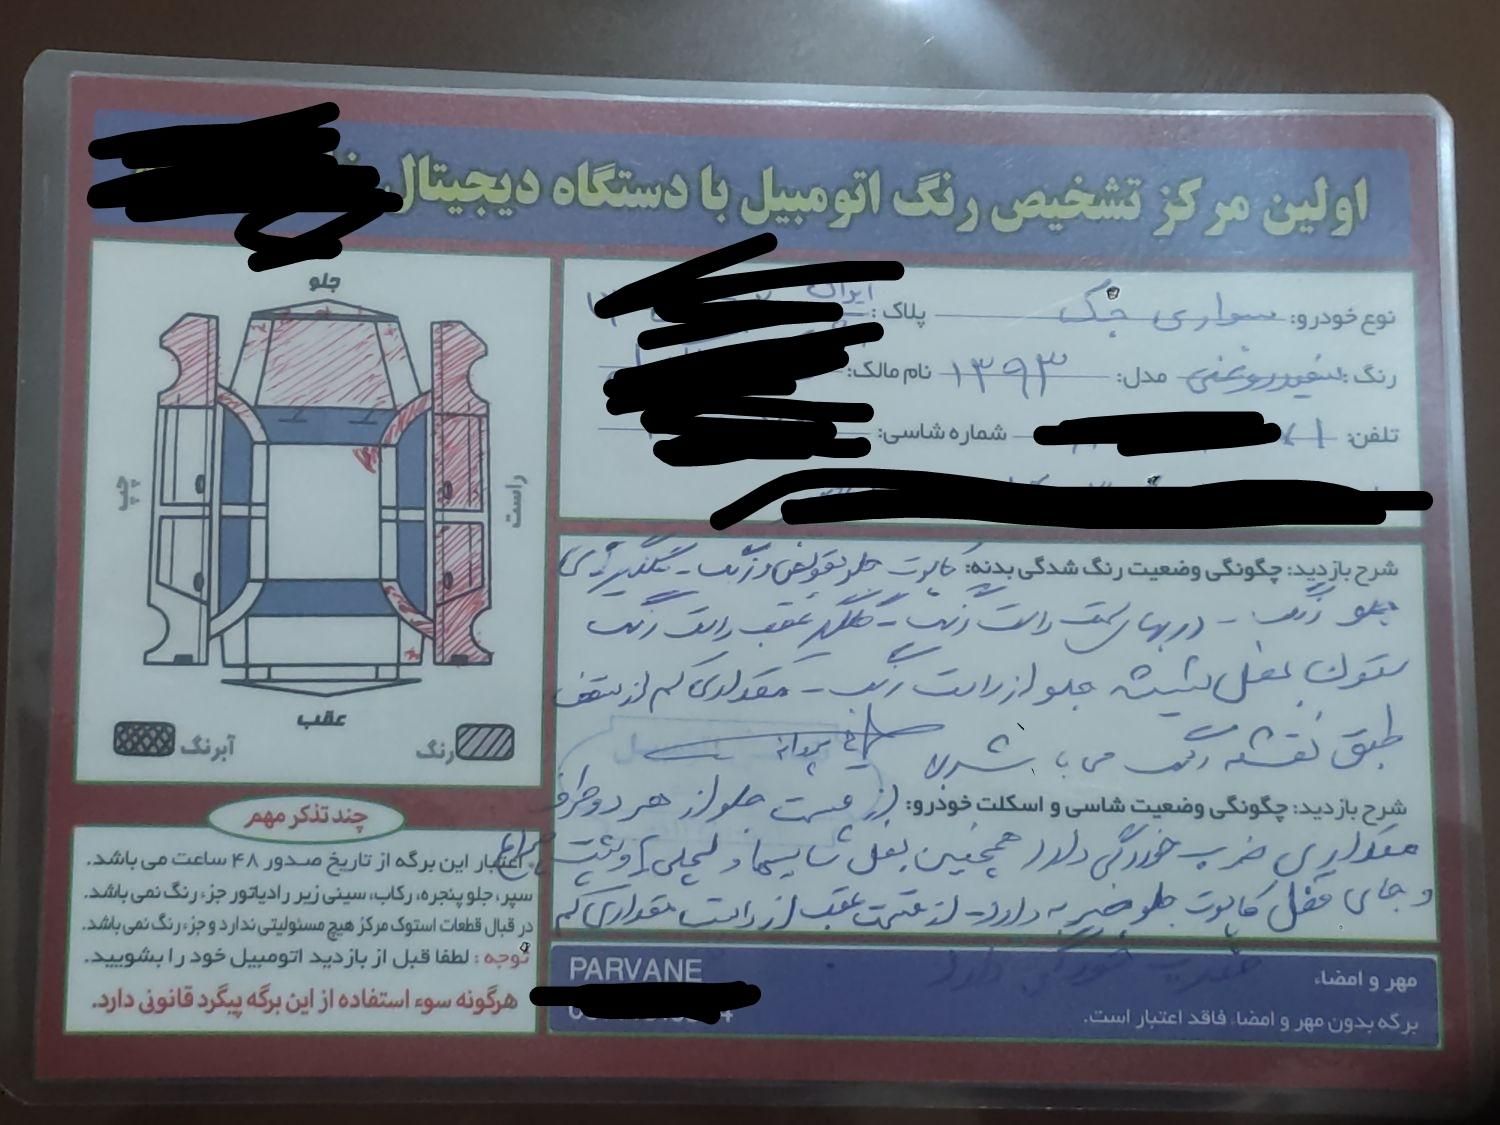 اولین مرکز تشخیص رنگ اتومبیل با دستگاه دیجیتال
نوع خودرو: سواری جک پلاک: ایران
رنگ: سفید روغنی مدل: ۱۳۹۳ نام مالک:
تلفن: شماره شاسی:
جلو
چپ
راست
عقب
رنگ
آبرنگ
شرح بازدید: چگونگی وضعیت رنگ شدگی بدنه: کاپوت جلو تعویض و رنگ - گلگیرهای
جلو رنگ - دربهای سمت راست رنگ - گلگیر عقب راست رنگ
ستون بغل شیشه جلو از راست رنگ - مقداری کم از سقف
طبق نقشه رنگ می باشد
شرح بازدید: چگونگی وضعیت شاسی و اسکلت خودرو: از قسمت جلو از هر دو طرف
مقداری ضرب خوردگی دارد همچنین بغل شاسیها و پشت چراغ
و جای قفل کاپوت جلو ضربه دارد - از قسمت عقب از راست مقداری کم
ضرب خوردگی دارد
چند تذکر مهم
اعتبار این برگه از تاریخ صدور ۴۸ ساعت می باشد.
سپر، جلو پنجره، رکاب، سینی زیر رادیاتور جزء رنگ نمی باشد.
در قبال قطعات استوک مرکز هیچ مسئولیتی ندارد و جزء رنگ نمی باشد.
توجه: لطفا قبل از بازدید اتومبیل خود را بشویید.
هرگونه سوء استفاده از این برگه پیگرد قانونی دارد.
PARVANE
مهر و امضاء
برگه بدون مهر و امضاء فاقد اعتبار است.